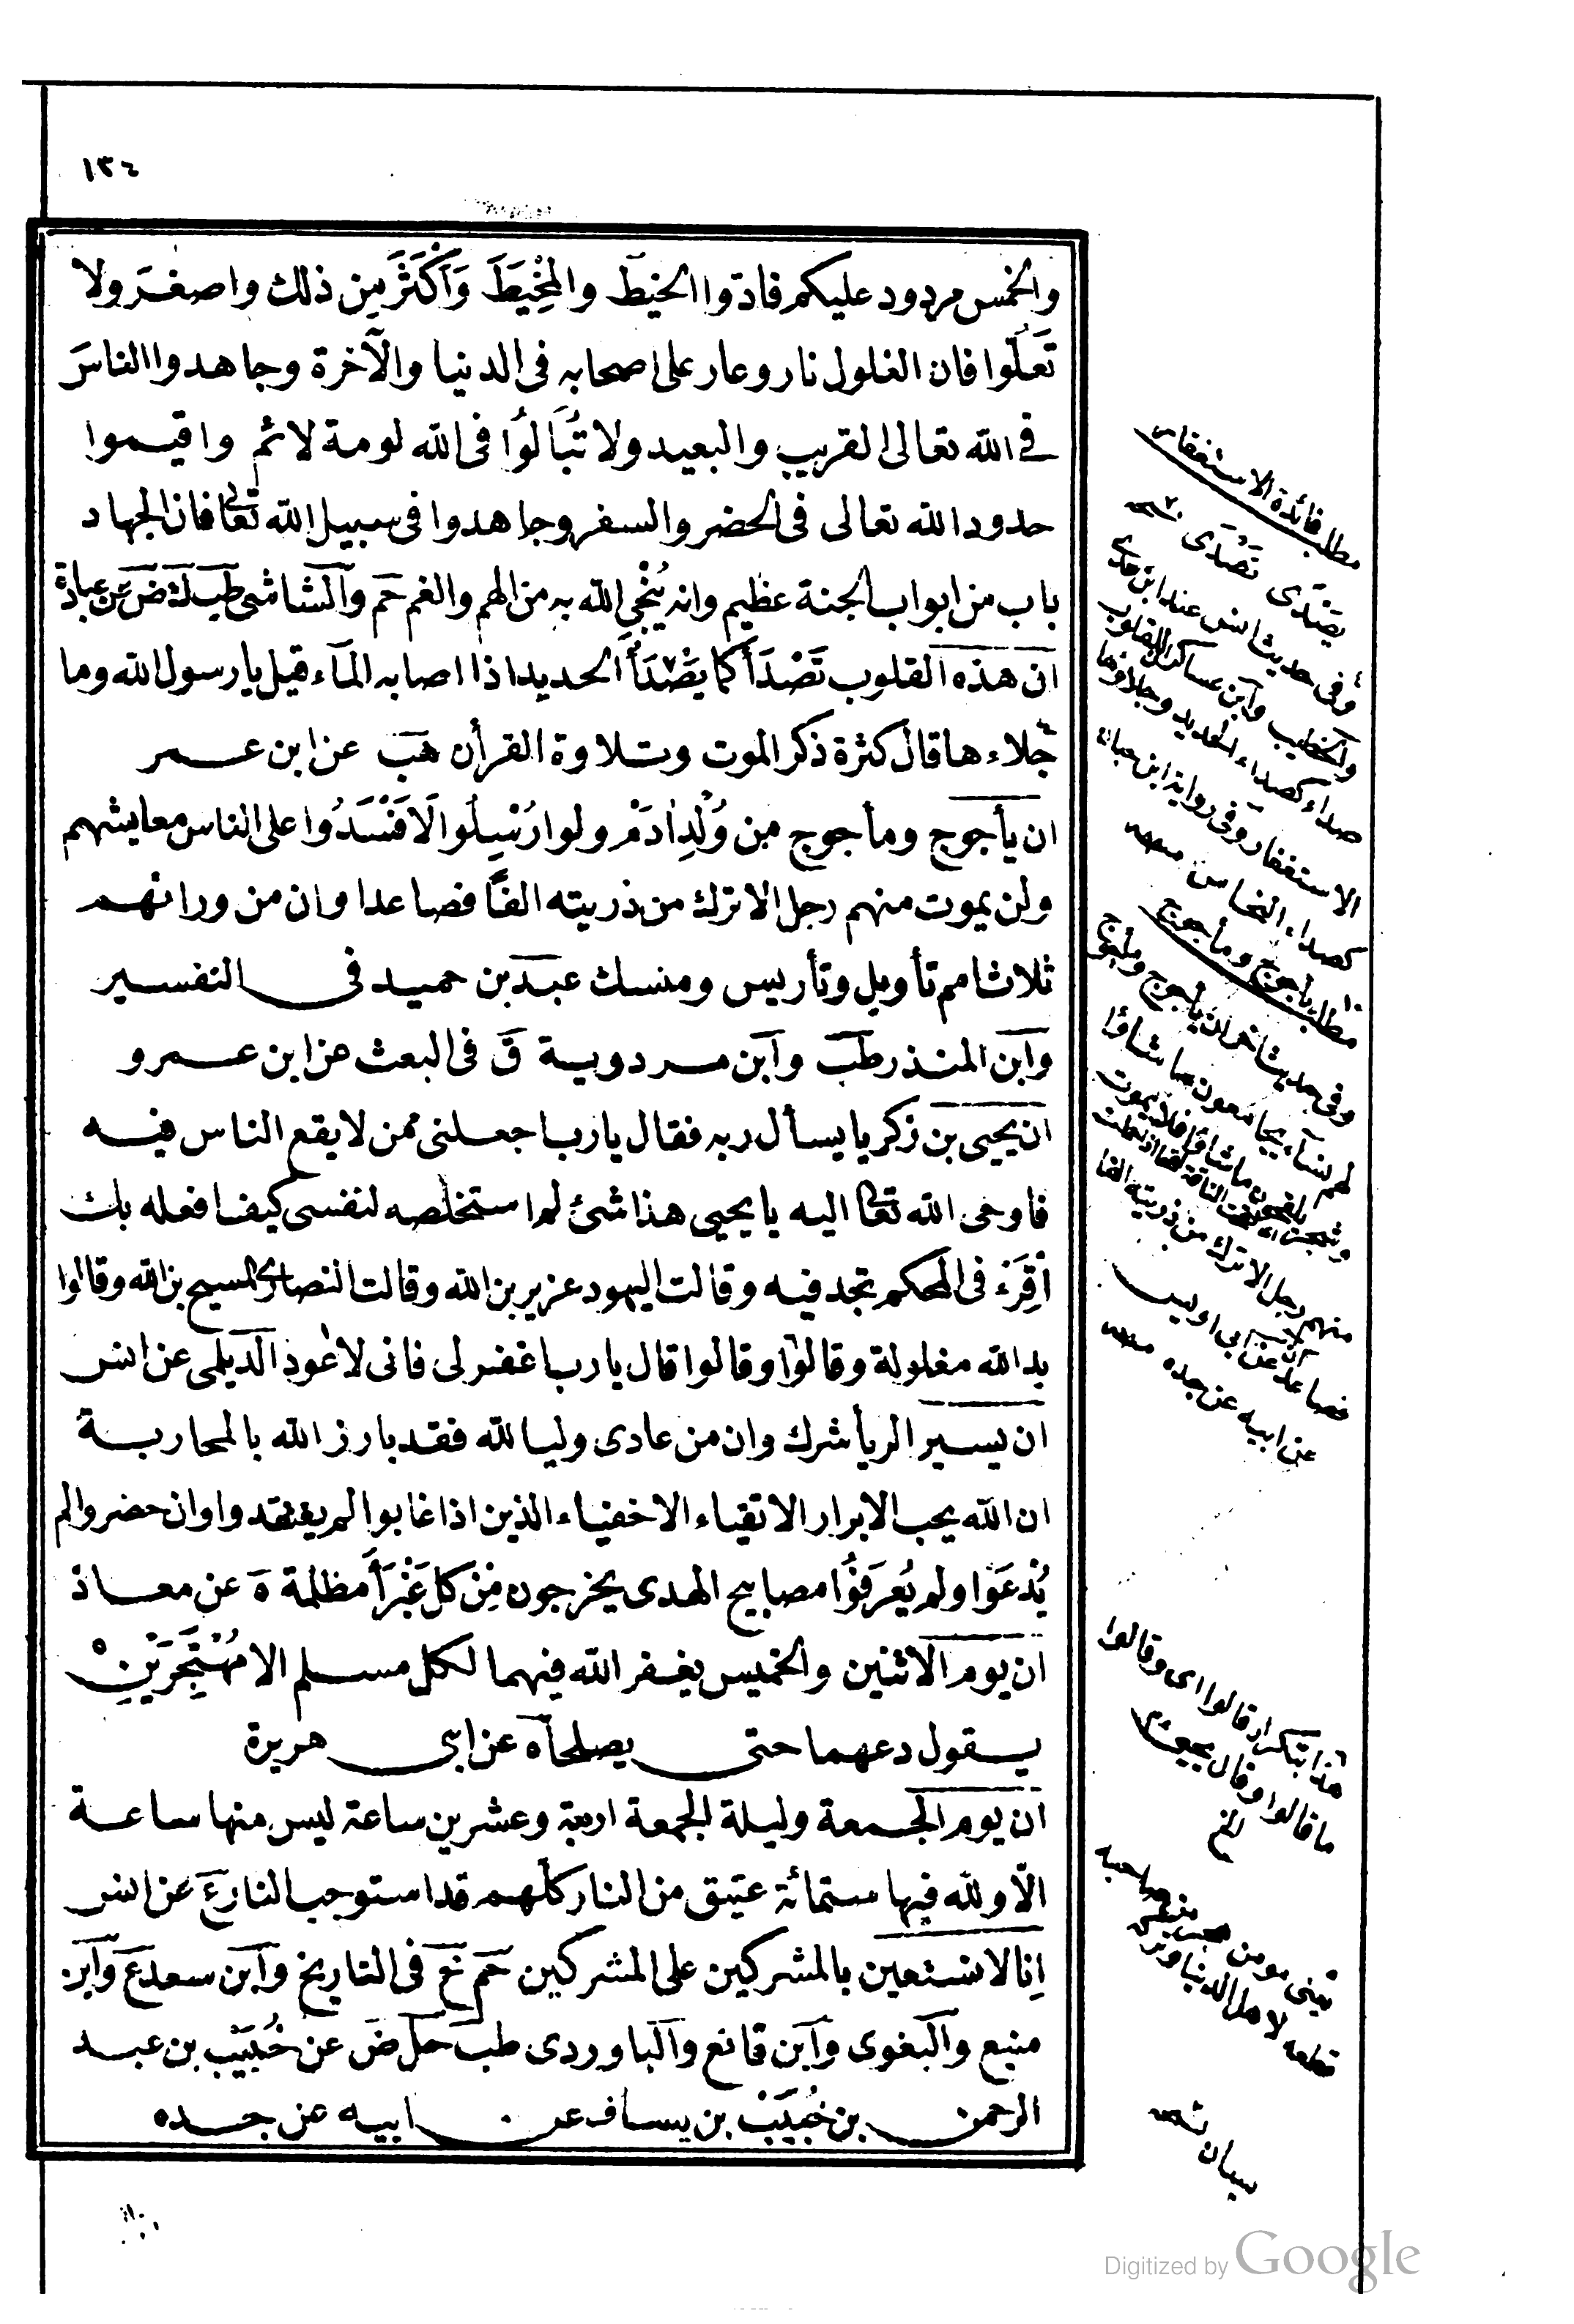 ١٣٤
والخمس مردود عليكم فادّوا الخيط والمِخْيَطَ وَاَكْثَرَ مِن ذلك واصغَرَ ولا
تَغُلّوا فان الغلول نار وعار على اصحابه فى الدنيا والآخرة وجاهدوا الناسَ
فى الله تعالى القريب والبعيد ولا تُبَالُوا فى الله لومة لائم واقيموا
حدود الله تعالى فى الحضر والسفر وجاهدوا فى سبيل الله تعالى فان الجهاد
باب من ابواب الجنة عظيم وانه يُنْجِي الله به من الهم والغم حم والشاشى طب ك ض عن عبادة
ان هذه القلوب تَصْدَأُ كما يَصْدَأُ الحديد اذا اصابه الماء قيل يا رسول الله وما
جلاءها قال كثرة ذكر الموت وتلاوة القرأن هب عن ابن عمر
ان يأجوج ومأجوج مِن وُلْدِ اٰدَمَ ولو ارُسِلُوا لَاَفْسَدُوا على الناس معايشهم
ولن يموت منهم رجل الا ترك من ذريته الفًا فصاعدا وان من ورائهم
ثلاث امم تأويل وتأريس ومنسك عبد بن حميد فى التفسير
وابن المنذر طب وابن مردوية ق فى البعث عن ابن عمرو
ان يحيى بن زكريا يسأل ربه فقال يا رب اجعلنى ممن لا يقع الناس فيه
فاوحى الله تعالى اليه يا يحيى هذا شئ لم استخلصه لنفسى كيف افعله بك
اقرء فى المحكم تجد فيه وقالت اليهود عزير بن الله وقالت النصارى المسيح بن الله وقالوا
يد الله مغلولة وقالوا وقالوا قال يا رب اغفر لى فانى لا عود الديلمى عن انس
ان يسير الريأ شرك وان من عادى وليا لله فقد بارز الله بالمحاربة
ان الله يحب الابرار الاتقياء الاخفياء الذين اذا غابوا لم يفتقدوا وان حضروا لم
يُدْعَوْا ولم يُعْرَفُوا مصابيح الهدى يخرجون مِنْ كل غَبْرَأَ مظلمة ه عن معاذ
ان يوم الاثنين والخميس يغفر الله فيهما لكل مسلم الا مُهْتَجِرَيْنِ
يقول دعهما حتى يصلحا ه عن ابى هريرة
ان يوم الجمعة وليلة الجمعة اربعة وعشرين ساعة ليس منها ساعة
الّا ولله فيها ستمائة عتيق من النار كلّهم قد استوجب النار ع عن انس
اِنا لا نستعين بالمشركين على المشركين حم خ فى التاريخ وابن سعد ع وابن
منيع والبغوى وابن قانع والباوردى طب حل ض عن خُبَيْب بن عبد
الرحمن بن خُبَيْب بن يساف عن ابيه عن جده
مطلب فائدة الاستغفار
يَصْدَى تَصْدَى
وفى حديث انس عند ابن عدى
والخطيب وابن عساكر ان للقلوب
صداء كصداء الحديد وجلاؤها
الاستغفار وفى رواية ابن حبان
كصداء النحاس
مطلب يأجوج ومأجوج
وفى حديث اخر ان يأجوج ومأجوج
لهم نساء يجامعون ما شاؤا
منهم رجل الا ترك من ذريته الفا
فصاعدا عن ابى اويس
عن ابيه عن جده
هذا بتكرار قالوا اى وقالوا
ما قالوا وقال
قطعه لاهل الدنيا
سيان
Digitized by Google